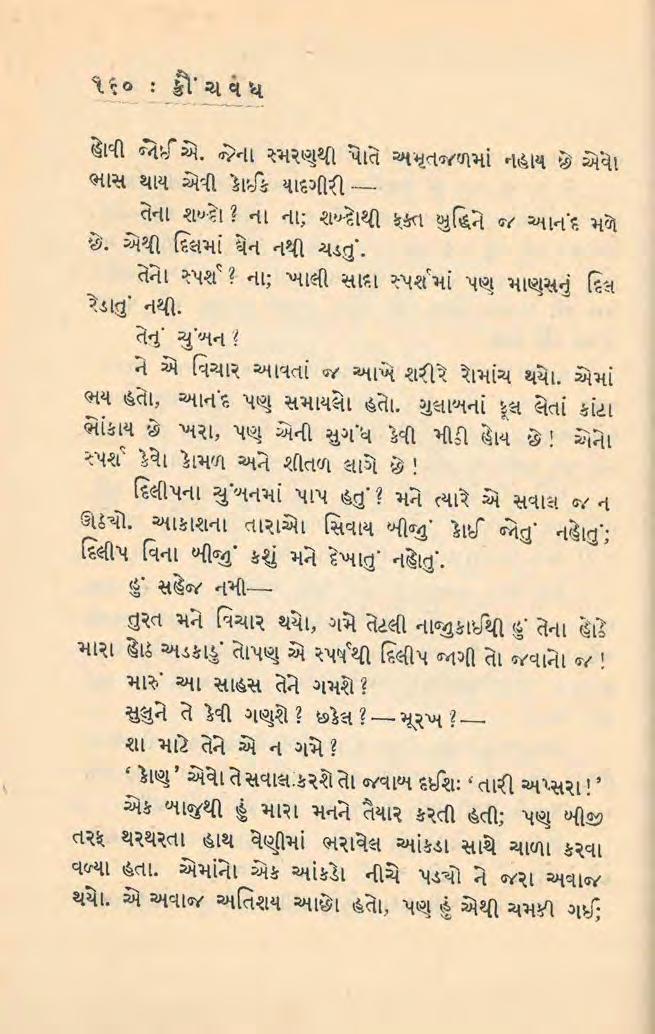 ૧૬૦ : ક્રૌંચવધ
હોવી જોઈએ. જેના સ્મરણથી પોતે અમૃતજળમાં નહાય છે એવો
ભાસ થાય એવી કોઈક યાદગીરી —
તેના શબ્દો ? ના ના; શબ્દોથી ફક્ત બુદ્ધિને જ આનંદ મળે
છે. એથી દિલમાં ઘેન નથી ચડતું.
તેનો સ્પર્શ ? ના; ખાલી સાદા સ્પર્શમાં પણ માણસનું દિલ
રેડાતું નથી.
તેનું ચુંબન ?
ને એ વિચાર આવતાં જ આખે શરીરે રોમાંચ થયો. એમાં
ભય હતો, આનંદ પણ સમાયલો હતો. ગુલાબનાં ફૂલ લેતાં કાંટા
ભોંકાય છે ખરા, પણ એની સુગંધ કેવી મીઠી હોય છે ! એનો
સ્પર્શ કેવો કોમળ અને શીતળ લાગે છે !
દિલીપના ચુંબનમાં પાપ હતું ? મને ત્યારે એ સવાલ જ ન
ઊઠ્યો. આકાશના તારાઓ સિવાય બીજું કોઈ જોતું નહોતું;
દિલીપ વિના બીજું કશું મને દેખાતું નહોતું.
હું સહેજ નમી—
તુરત મને વિચાર થયો, ગમે તેટલી નાજુકાઈથી હું તેના હોઠે
મારા હોઠ અડકાડું તોપણ એ સ્પર્ષથી દિલીપ જાગી તો જવાનો જ !
મારું આ સાહસ તેને ગમશે ?
સુલુને તે કેવી ગણશે ? છકેલ ? — મૂરખ ? —
શા માટે તેને એ ન ગમે ?
‘ કોણ ’ એવો તે સવાલ કરશે તો જવાબ દઈશઃ ‘ તારી અપ્સરા ! ’
એક બાજુથી હું મારા મનને તૈયાર કરતી હતી; પણ બીજી
તરફ થરથરતા હાથ વેણીમાં ભરાવેલ આંકડા સાથે ચાળા કરવા
વળ્યા હતા. એમાંનો એક આંકડો નીચે પડ્યો ને જરા અવાજ
થયો. એ અવાજ અતિશય આછો હતો, પણ હું એથી ચમકી ગઈ;